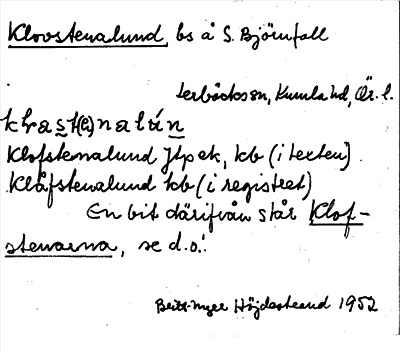 Klovstenalund, bs å S. Björnfall
Terböcksön, Kumla hd, Ör. l.
kl̥rast(e)nalún
Klofstenalund Jtp ek, kb (i texten)
Klåfstenalund kb (i registret)
En bit därifrån står Klof-
stenarna, se d.o.!
Höjdestrand 1952